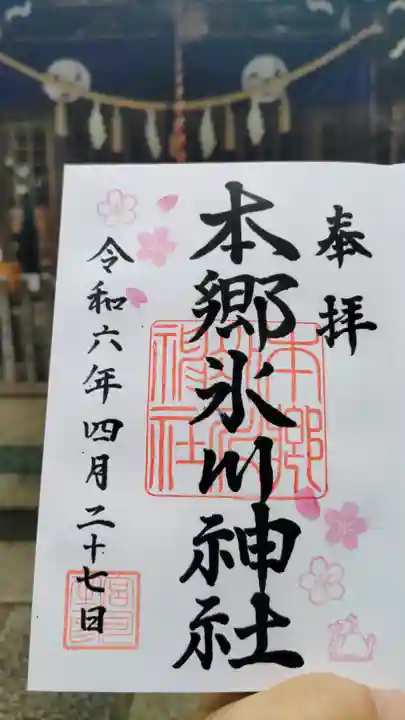 奉拝
本郷氷川神社
令和六年四月二十七日
本郷氷川神社